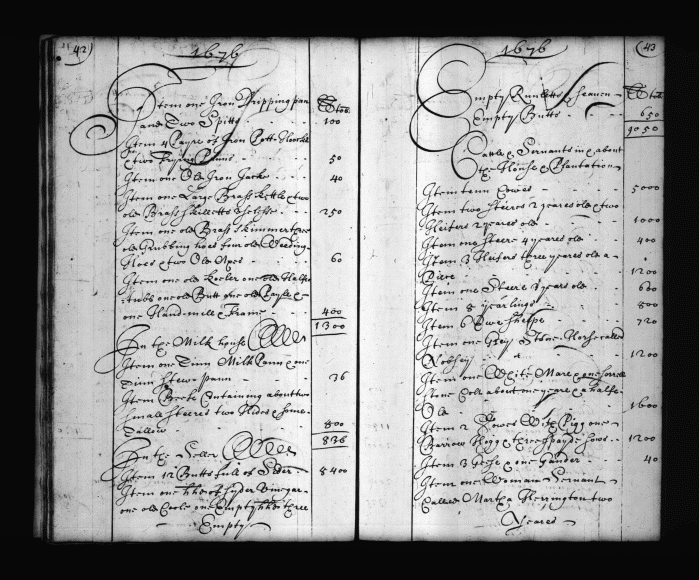 42
1676
Item one Iron Dripping pan
and Two Spitts
100
Item 4 Payre of Iron Pott Hookes
& two Frying Panns
50
Item one Old Iron Jack
40
Item one Large Brass kettle & two
old Brass Skilletts
250
Item one old Brass skimmer three
old Grubbing hoes five old Weeding
Hoes & two Old Axes
60
Item one old Keeler one old halfe
tubb one old Butt one old Payle &
one Hand mill & Frame
400
1300
In the Milk house
Item one Tinn Milk Pann & one
Tinn Stew pann
36
Item Beefe Containing about two
small Steeres two Hides & some
Tallow
800
836
In the Seller
Item 12 Butts full of Sider
8400
Item one hhd of Syder Vinegar
one old one Empty hhd three
Empty
1676
43
Empty Runletts & seaven
Empty Butts
650
9050
Cattle & Servants in & about
the House & Plantation
Item tenn Cowes
5000
Item two Steeres 2 yeares old & two
Heifers 2 yeares old
1000
Item one Steere 4 yeares old
400
Item 3 Heifers three yeares old a
Piece
1200
Item one Steere 3 yeares old
600
Item 8 yearlings
800
Item 6 Ewe Sheepe
720
Item one Grey Stone Horse called
1200
Item one White Mare & one sorrell
stone Colt about one yeare & halfe
Old
1600
Item 2 Sowes With Pigg one
Barrow Hogg & three spayde sows
1200
Item 3 Geese & one Gander
40
Item one Woman Servant
Called Martha Herrington two
Yeares